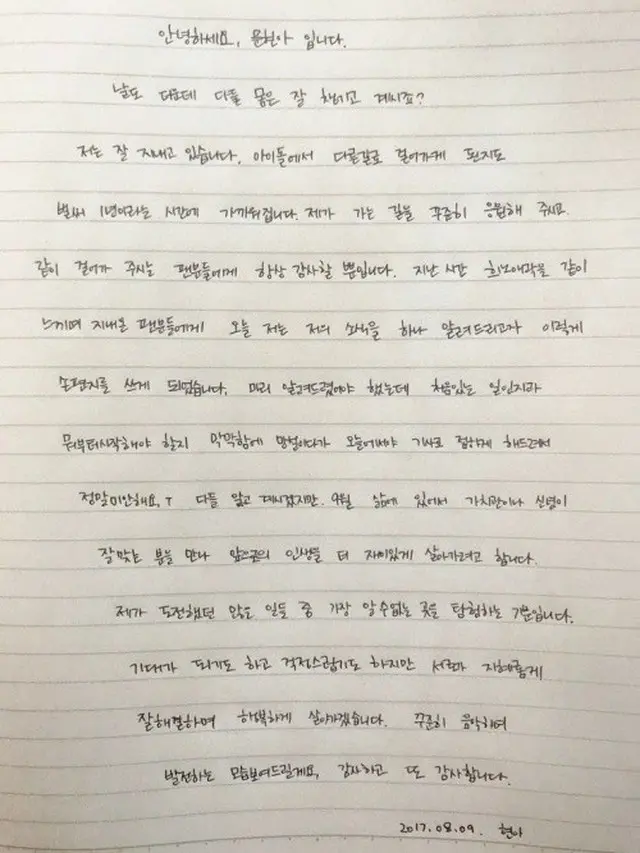 안녕하세요, 문현아 입니다.
날도 더운데 다들 몸은 잘 챙기고 계시죠?
저는 잘 지내고 있습니다. 아이돌에서 다른길로 걸어가게 된지도
벌써 1년이라는 시간에 가까워집니다. 제가 가는 길을 꾸준히 응원해 주시고
같이 걸어가 주시는 팬분들에게 항상 감사할 뿐입니다. 지난 시간 희노애락을 같이
느끼며 지내온 팬분들에게 오늘 저는 저의 소식을 하나 알려드리고자 이렇게
손편지를 쓰게 되었습니다. 미리 알려드렸어야 했는데 처음있는 일인지라
뭐부터시작해야 할지 막막함에 망설이다가 오늘에서야 기사로 접하게 해드려서
정말미안해요.ㅜ 다들 알고 계시겠지만. 9월 삶에 있어서 가치관이나 신념이
잘맞는 분을 만나 앞으로의 인생을 더 재미있게 살아가려고 합니다.
제가 도전했던 많은 일들 중 가장 알수없는 곳을 탐험하는 기분입니다.
기대가 되기도 하고 걱정스럽기도 하지만 서로가 지혜롭게
잘해결하며 행복하게 살아가겠습니다. 꾸준히 음악하며
발전하는 모습보여드릴게요, 감사하고 또 감사합니다.
2017.08.09. 현아